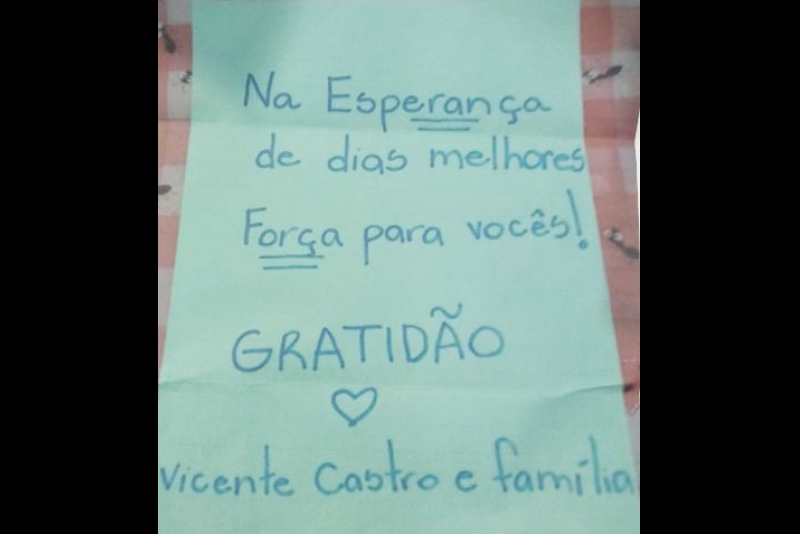 Na Esperança
de dias melhores
Força para vocês!
GRATIDÃO
Vicente Castro e família